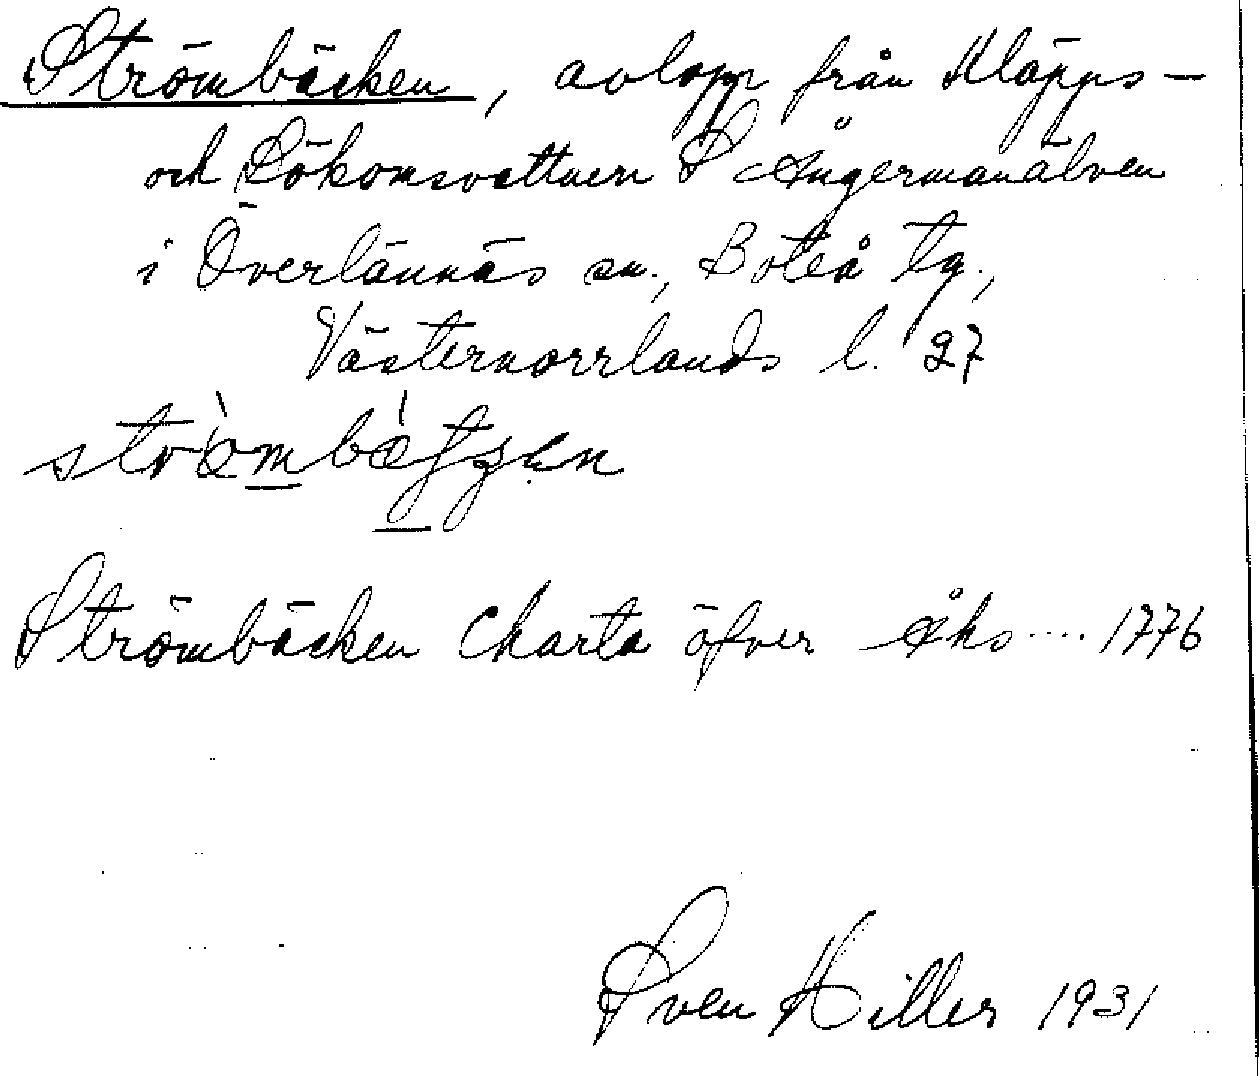 Strömbäcken, avlopp från Kläpps-
och Lökomsvattnen S Ångermanälven
i Överlännäs sn., Boteå tg.,
Västernorrlands l. 27
Strömbäcken Charta öfver Åhs .... 1776
Sven Hiller 1931